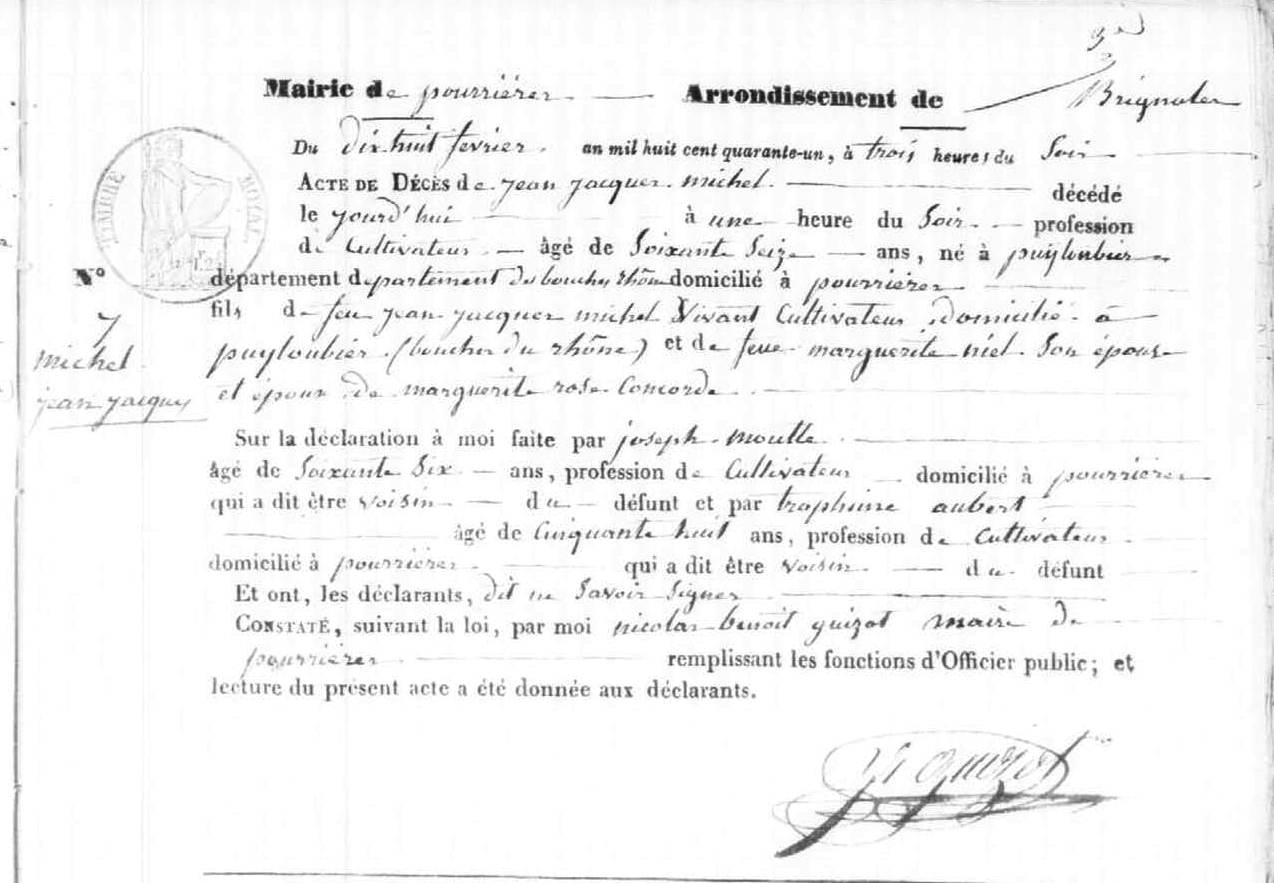 3
Mairie de pourrières Arrondissement de Brignoles
Du dix huit fevrier an mil huit cent quarante-un, à trois heures du Soir
ACTE DE DÉCÈS de jean jacques michel décédé
le jourd'hui à une heure du Soir profession
de Cultivateur âgé de Soixante Seize ans, né à puyloubier
TIMBRE ROYAL
N° département departement des bouches rhône domicilié à pourrières
7 fils de feu jean jacques michel Vivant Cultivateur domicilié à
michel puyloubier (bouches du rhône) et de feue marguerite niel Son épouse
jean jacques et époux de marguerite rose Concorde
Sur la déclaration à moi faite par joseph moutte
âgé de Soixante Six ans, profession de Cultivateur domicilié à pourrières
qui a dit être voisin du défunt et par trophime aubert
âgé de Cinquante huit ans, profession de Cultivateur
domicilié à pourrières qui a dit être voisin du défunt
Et ont, les déclarants, dit ne Savoir Signer
CONSTATÉ, suivant la loi, par moi nicolas benoit guizot maire de
pourrières remplissant les fonctions d'Officier public; et
lecture du présent acte a été donnée aux déclarants.
guizot